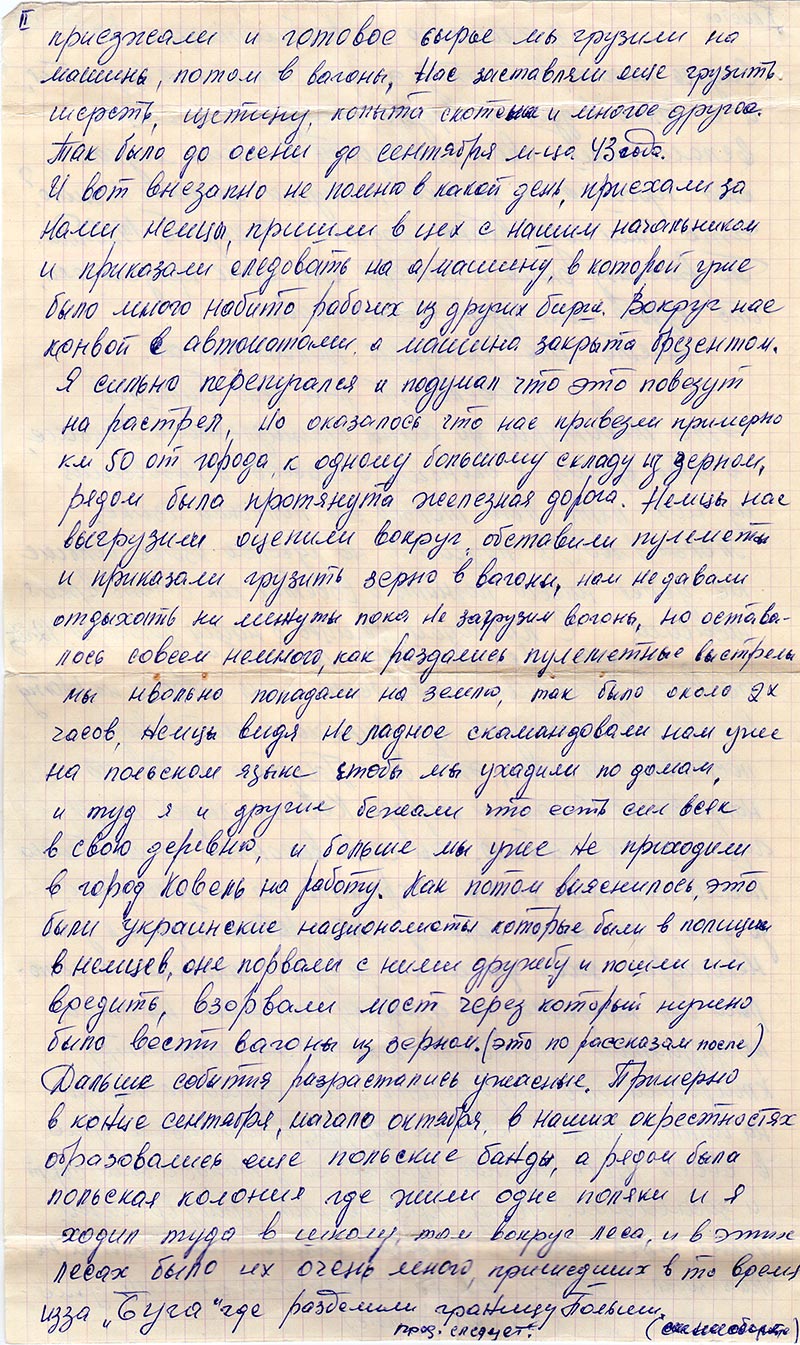 II
приезжали и готовое сырье мы грузили на
машины, потом в вагоны, Нас заставляли еще грузить
шерсть, щетину, копыта скотены и многое другое.
Так было до осени до сентября м-ца 43 года.
И вот внезапно не помню в какой день, приехали за
нами немцы, пришли в цех с нашим начальником
и приказали следовать на а/машину, в которой уже
было много набито рабочих из других бирж. Вокруг нас
конвой с автоматами, а машина закрыта брезентом.
Я сильно перепугался и подумал что это повезут
на растрел, Но оказалось что нас привезли примерно
км 50 от города, к одному большому складу из зерном,
рядом была протянута железная дорога. Немцы нас
выгрузили оценили вокруг, обставили пулеметы
и приказали грузить зерно в вагоны, нам недавали
отдыхать ни минуты пока не загрузим вагоны, но остава-
лось совсем немного, как раздались пулеметные выстрелы
мы нвольно попадали на землю, так было около 2х
часов, Немцы видя не ладное скамандовали нам уже
на польском языке чтобы мы ухадили по домам,
и туд я и другие бежали что есть сил всяк
в свою деревню, и больше мы уже не приходили
в город Ковель на работу. Как потом вияснилось, это
были украинские националисты которые были в полиции
в немцев, оне порвали с ними дружбу и пошли им
вредить, взорвали мост через который нужно
было вести вагоны из зерном. (это по рассказам после)
Дальше события разрастались ужасные. Примерно
в конце сентября, начало октября, в наших окрестностях
образовались еще польские банды, а рядом была
польская колония где жили одне поляки и я
ходил туда в школу, там вокруг леса, и в этих
лесах было их очень много, пришедших в то время
изза „Буга" где разделили границу Польши.
прод. следует.